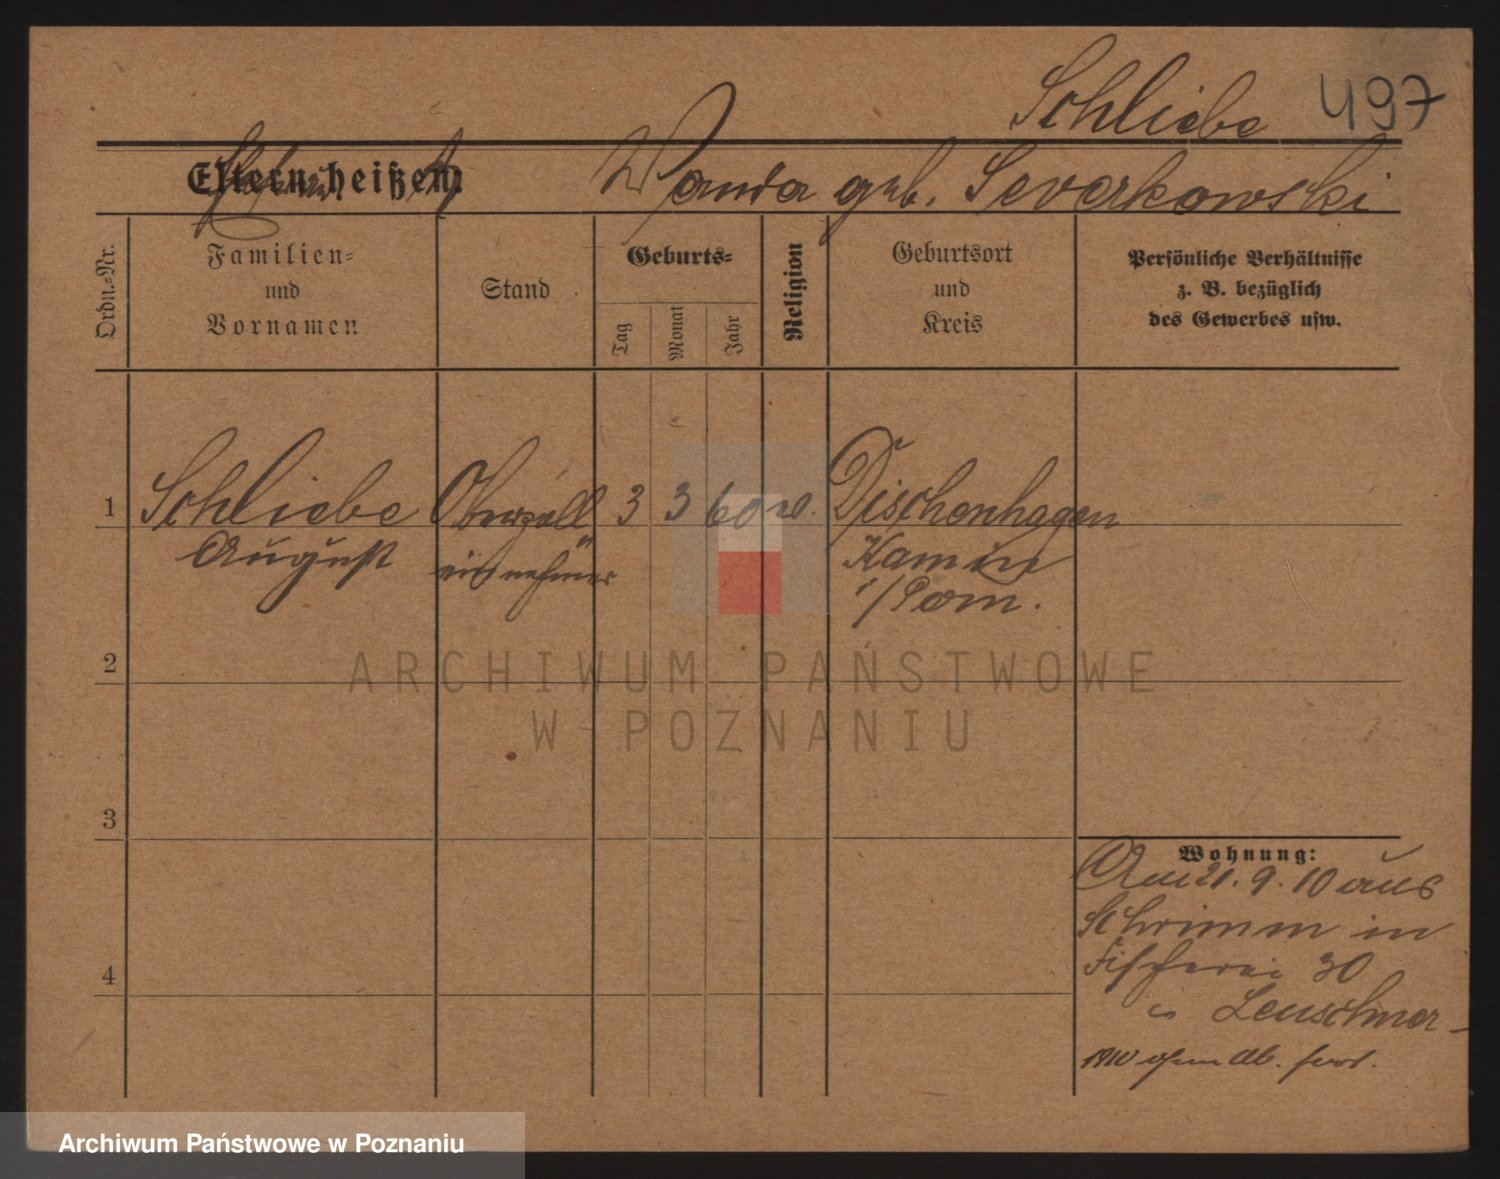 Schliebe 497
Eltern heißen: Wanda geb. Severkowski
Ordn.-Nr.
Familien-
und
Vornamen
Stand
Geburts-
Tag
Monat
Jahr
Religion
Geburtsort
und
Kreis
Persönliche Verhältnisse
z. B. bezüglich
des Gewerbes usw.
1 Schliebe Oberzoll 3 3 60 Dischenhagen
August einnehmer Kamin
i/Pom.
2
3
4
Wohnung:
Am 21. 9. 10 aus
Schrimm in
Fischerei 30
Leuschner
1910 ohne Ab. fort.
ARCHIWUM PAŃSTWOWE
W POZNANIU
Archiwum Państwowe w Poznaniu